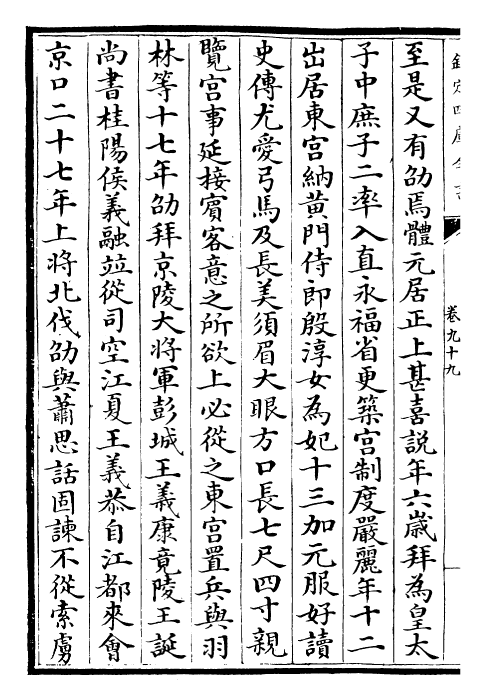 欽定四庫全書
卷九十九
至是又有劭焉體元居正上甚喜説年六歲拜為皇太
子中庶子二率入直永福省更築宫制度嚴麗年十二
出居東宫納黄門侍郎殷淳女為妃十三加元服好讀
史傳尤愛弓馬及長美須眉大眼方口長七尺四寸親
覽宫事延接賓客意之所欲上必從之東宫置兵與羽
林等十七年劭拜京陵大將軍彭城王義康竟陵王誕
尚書桂陽侯義融並從司空江夏王義恭自江都來會
京口二十七年上將北伐劭與蕭思話固諫不從索虜